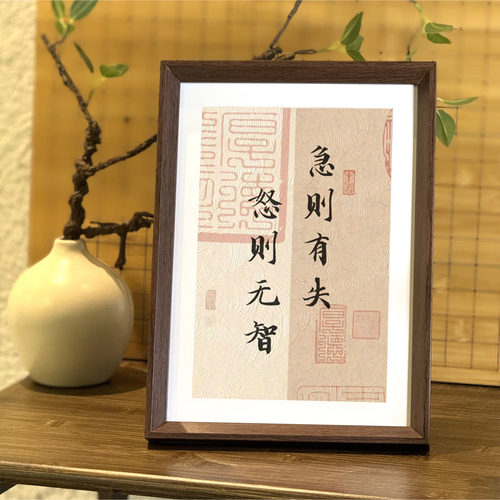 急则有失
怒则无智